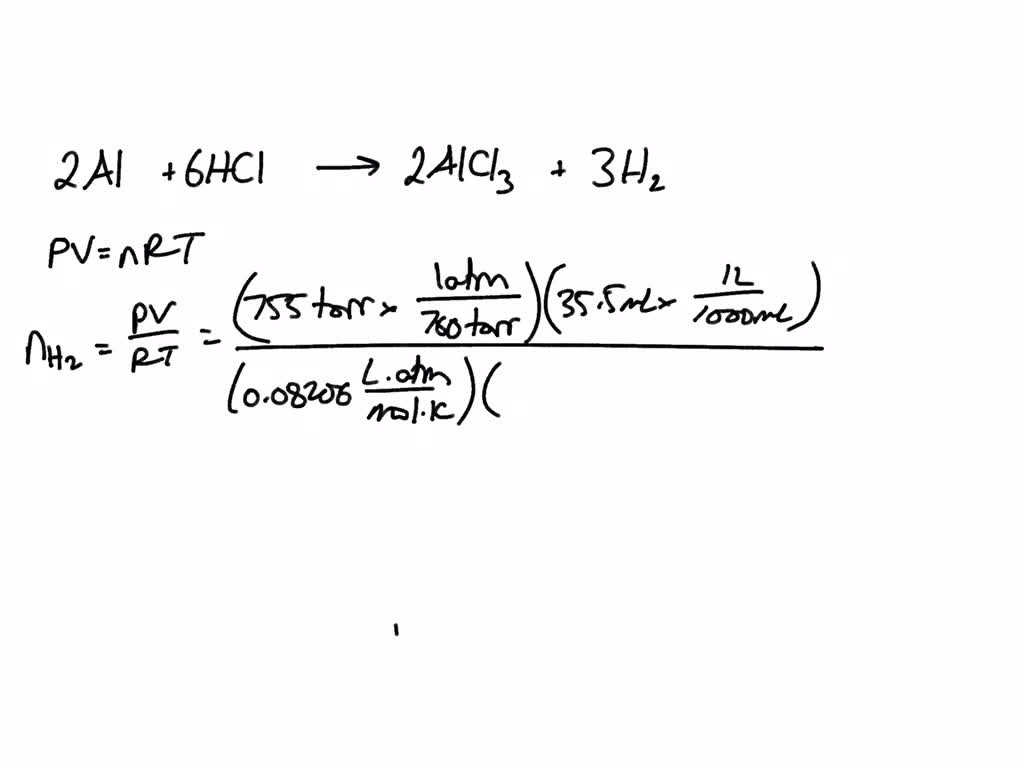 2Al + 6HCl → 2AlCl₃ + 3H₂
PV = nRT
n_H₂ = PV/RT = (755 torr × 1atm/760 torr)(35.5 mL × 1L/1000 mL) / (0.08206 L·atm/mol·K)(